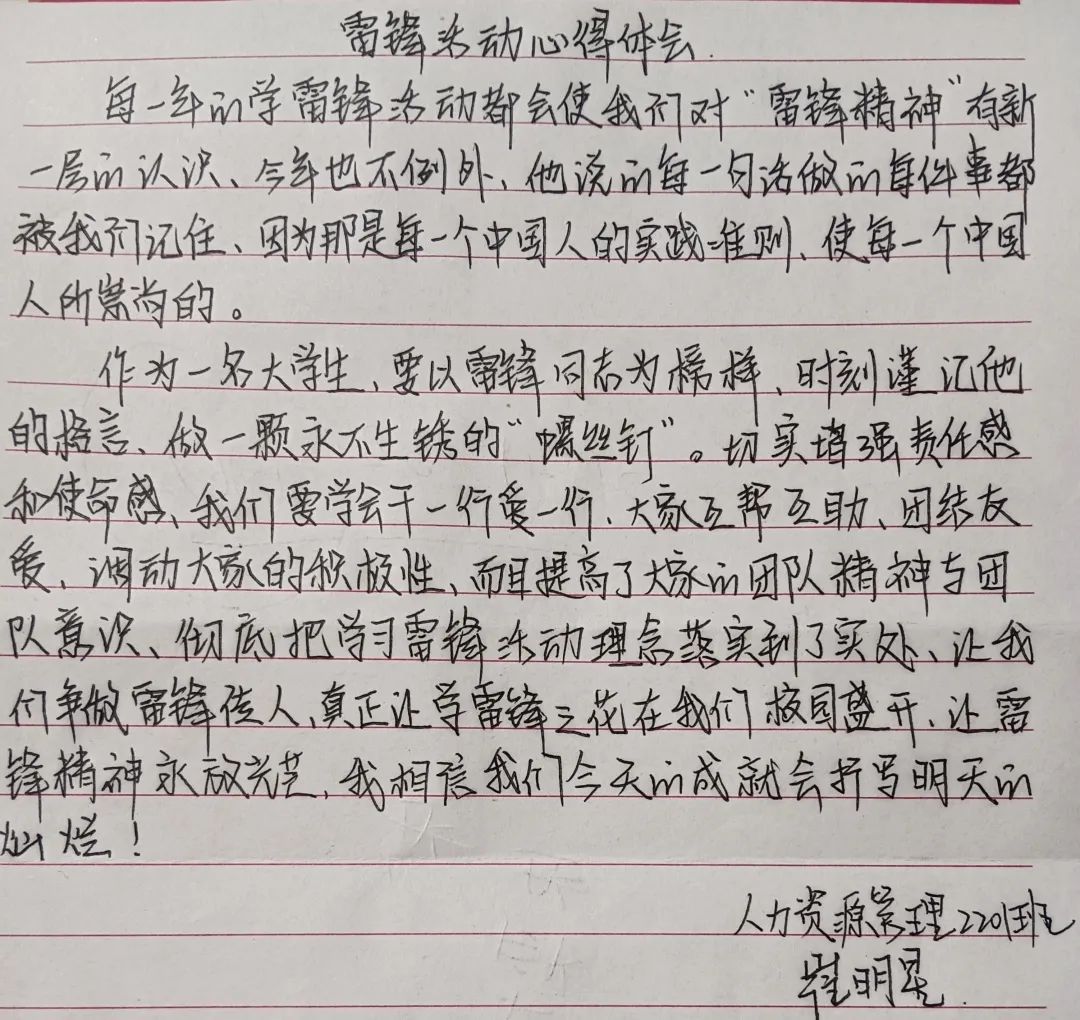 雷锋活动心得体会.
每一年的学雷锋活动都会使我们对“雷锋精神”有新
一层的认识、今年也不例外、他说的每一句话做的每件事都
被我们记住、因为那是每一个中国人的实践准则、使每一个中国
人所崇尚的。
作为一名大学生、要以雷锋同志为榜样、时刻谨记他
的格言、做一颗永不生锈的“螺丝钉”。切实增强责任感
和使命感、我们要学会干一行爱一行、大家互帮互助、团结友
爱、调动大家的积极性、而且提高了大家的团队精神与团
队意识、彻底把学习雷锋活动理念落实到了实处、让我
们争做雷锋传人、真正让学雷锋之花在我们校园盛开、让雷
锋精神永放光芒、我相信我们今天的成就会抒写明天的
灿烂！
人力资源管理2201班
崔明星